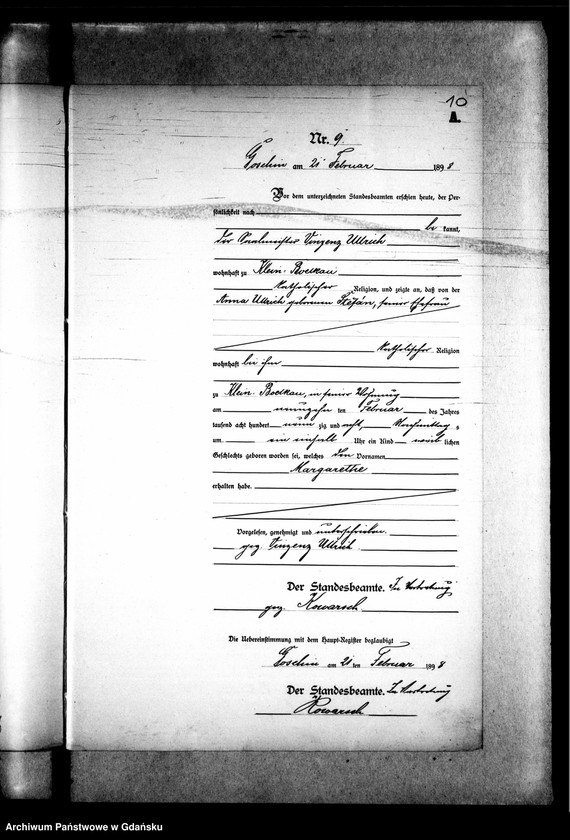 10
A.
Nr. 9.
Goschin am 21 Februar 1898
Vor dem unterzeichneten Standesbeamten erschien heute, der Per-
sönlichkeit nach
be kannt,
der Vinzenz Ullrich
wohnhaft zu Klein-Boelkau
katholischer Religion, und zeigte an, daß von der
Anna Ullrich geborenen Stefan, seiner Ehefrau
katholischer Religion
wohnhaft bei ihm
zu Klein-Boelkau, in seiner Wohnung
am neunzehn ten Februar des Jahres
tausend acht hundert neun zig und acht, Vormittags
um ein einhalb Uhr ein Kind weib lichen
Geschlechts geboren worden sei, welches den Vornamen
Margarethe
erhalten habe.
Vorgelesen, genehmigt und unterschrieben.
gez. Vinzenz Ullrich
Der Standesbeamte. In Vertretung
gez. Kowarsch
Die Uebereinstimmung mit dem Haupt-Register beglaubigt
Goschin am 21 ten Februar 1898
Der Standesbeamte. In Vertretung
Kowarsch
Archiwum Państwowe w Gdańsku